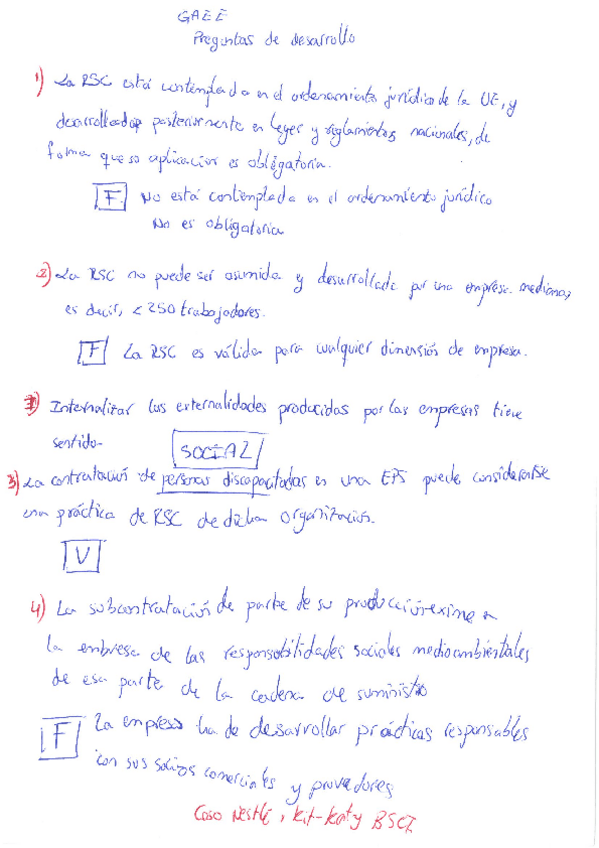 GAEE
Preguntas de desarrollo
1) La RSC está contemplada en el ordenamiento jurídico de la UE, y
desarrollada posteriormente en leyes y reglamentos nacionales, de
forma que su aplicación es obligatoria.
F No está contemplada en el ordenamiento jurídico
No es obligatoria
2) La RSC no puede ser asumida y desarrollada por una empresa mediana,
es decir, < 250 trabajadores.
F La RSC es válida para cualquier dimensión de empresa.
Internalizar las externalidades producidas por las empresas tiene
sentido-
SOCIAL
3) La contratación de personas discapacitadas en una EPS puede considerarse
una práctica de RSC de dicha organización.
V
4) La subcontratación de parte de su producción exime a
la empresa de las responsabilidades sociales medioambientales
de esa parte de la cadena de suministro
F La empresa ha de desarrollar prácticas responsables
con sus socios comerciales y provedores
Caso Nestlé, kit-kat y BSCI